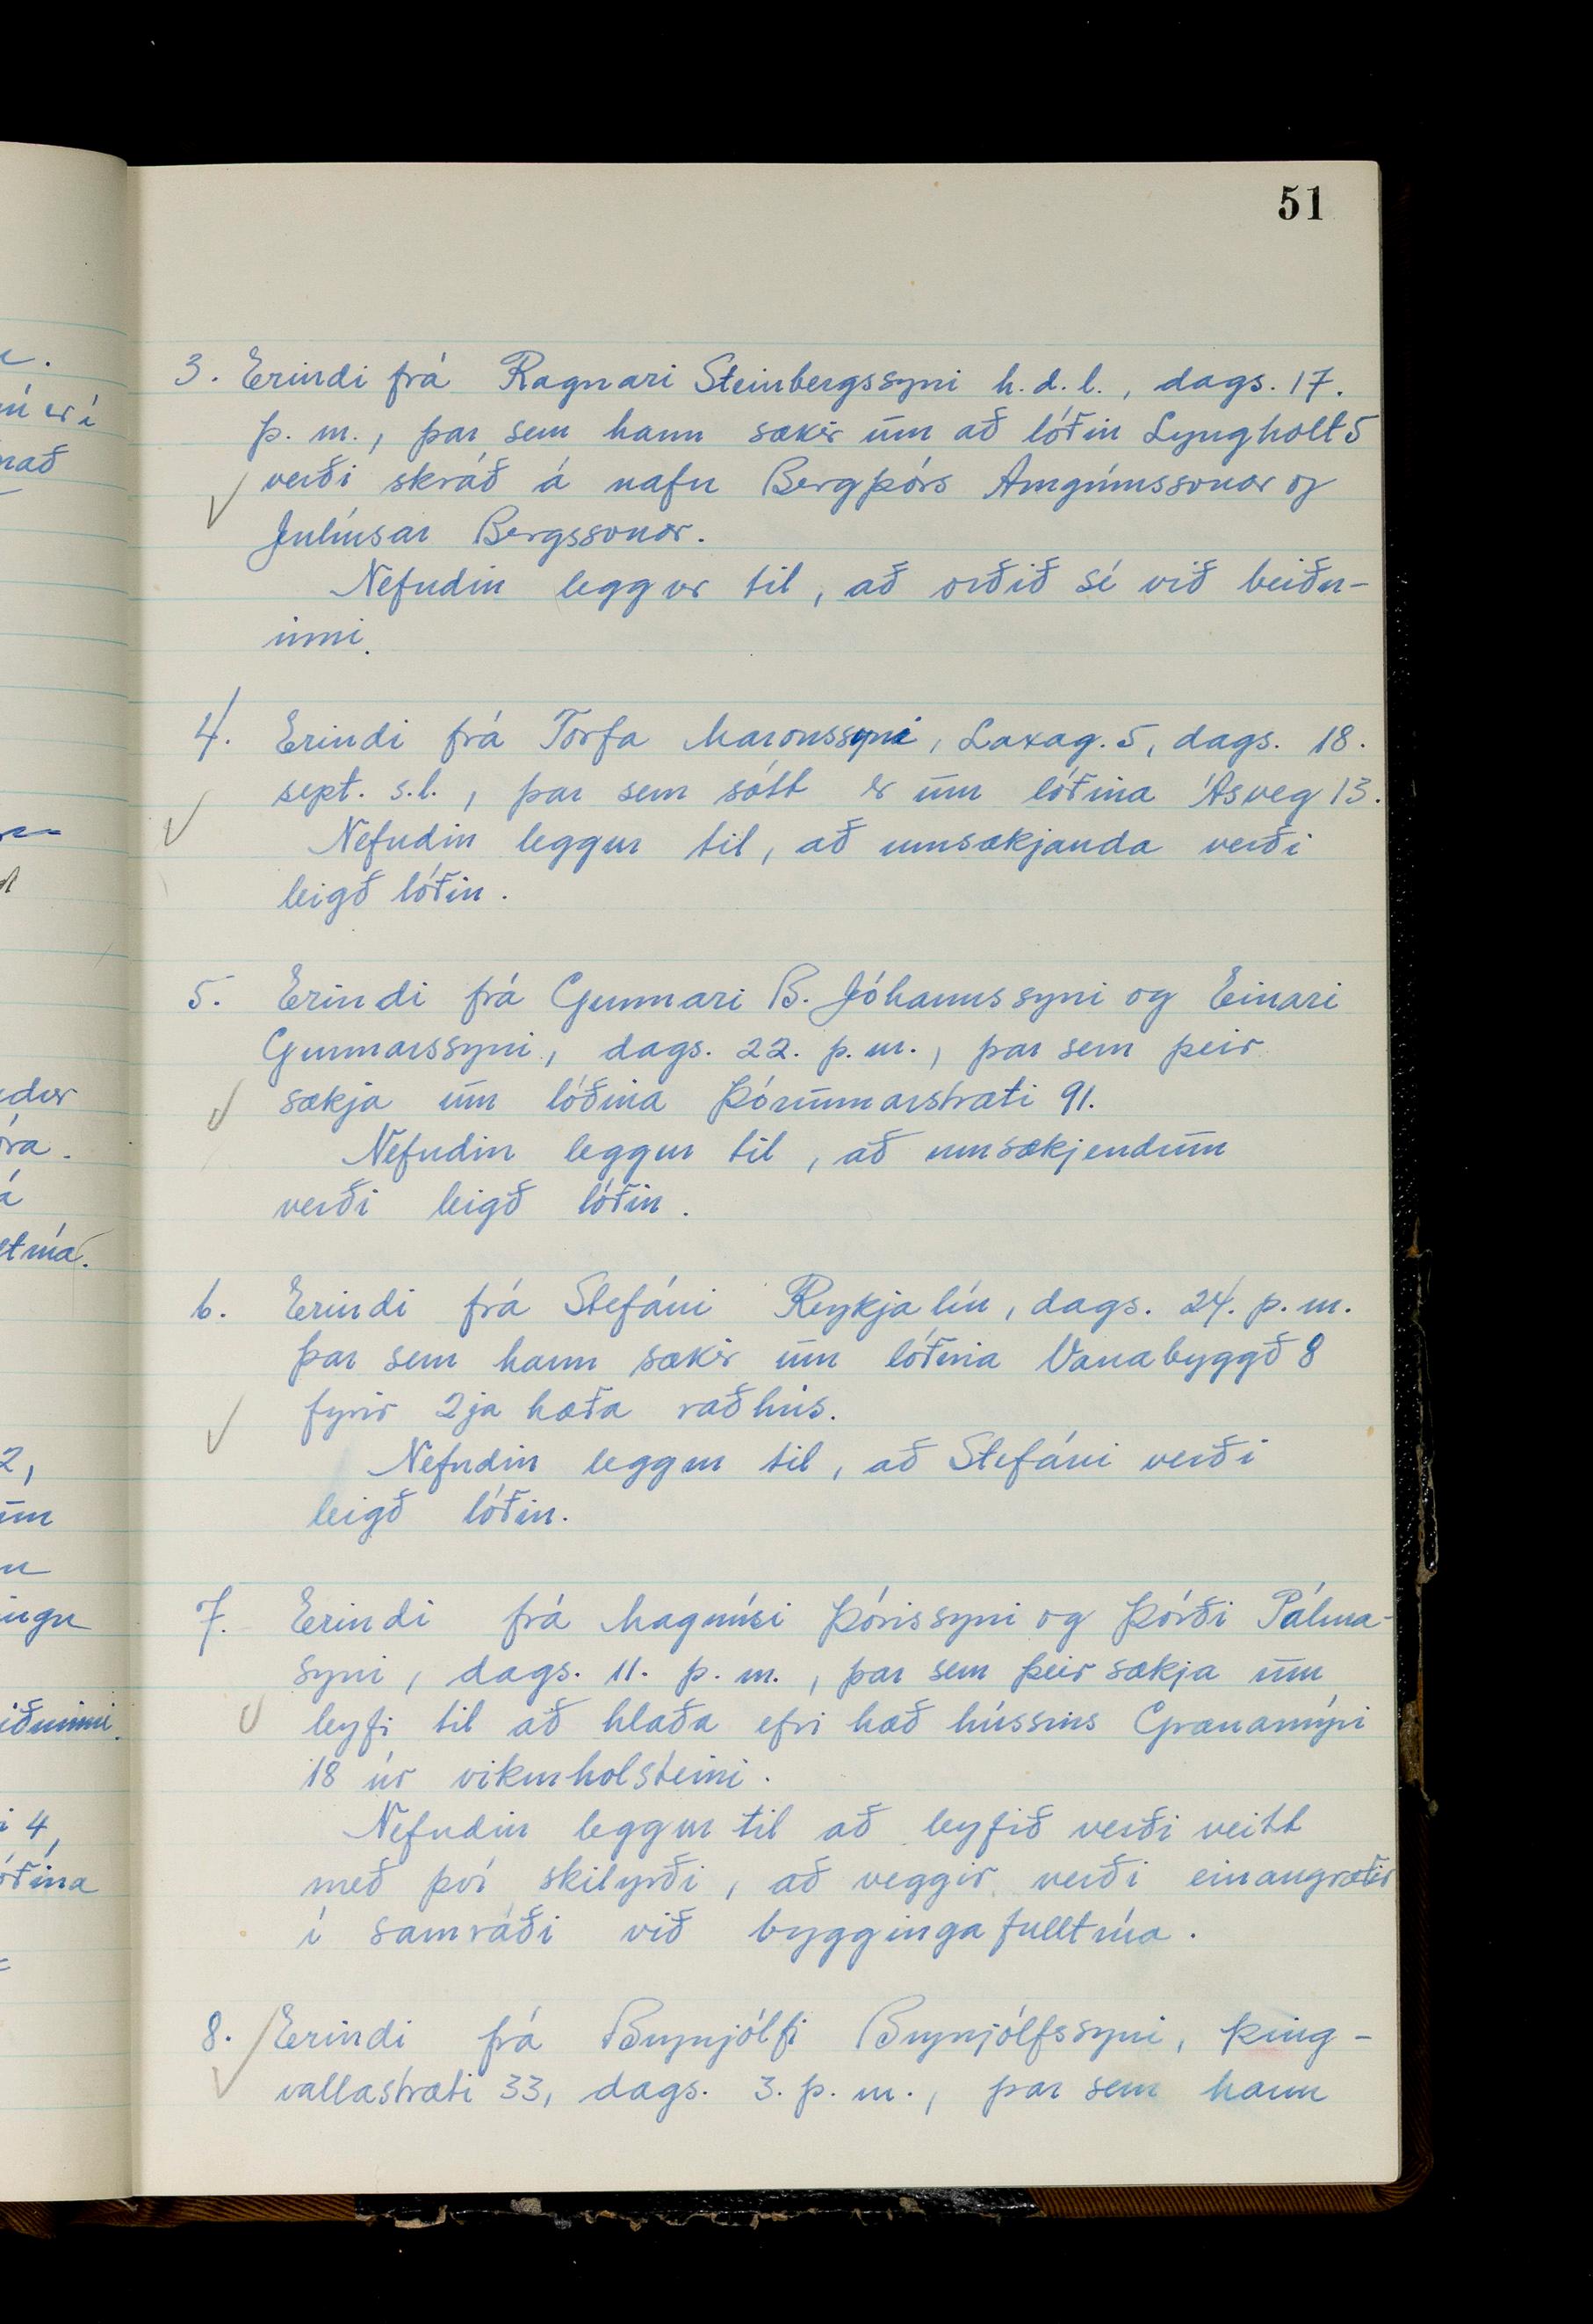 51
3. Erindi frá Ragnari Steinbergssyni h.d.l., dags. 17.
þ. m., þar sem hann sækir um að lóðin Lyngholt 5
verði skráð á nafn Bergþórs Arngrímssonar og
Júlíusar Bergssonar.
Nefndin leggur til, að orðið sé við beiðn-
inni.
4. Erindi frá Torfa Maronssyni, Laxag. 5, dags. 18.
sept. s.l., þar sem sótt er um lóðina Ásveg 13.
Nefndin leggur til, að umsækjanda verði
leigð lóðin.
5. Erindi frá Gunnari B. Jóhannssyni og Einari
Gunnarssyni, dags. 22. þ.m., þar sem þeir
sækja um lóðina Þórunnarstræti 91.
Nefndin leggur til, að umsækjendum
verði leigð lóðin.
6. Erindi frá Stefáni Reykjalín, dags. 24. þ.m.
þar sem hann sækir um lóðina Vanabyggð 8
fyrir 2ja hæða raðhús.
Nefndin leggur til, að Stefáni verði
leigð lóðin.
7. Erindi frá Magnúsi Þórissyni og Þórði Pálma-
syni, dags. 11. þ.m., þar sem þeir sækja um
leyfi til að hlaða efri hæð hússins Grænamýri
18 úr vikurholsteini.
Nefndin leggur til að leyfið verði veitt
með því skilyrði, að veggir verði einangraðir
í samráði við byggingafulltrúa.
8. Erindi frá Brynjólfi Brynjólfssyni, Þing-
vallastræti 33, dags. 3. þ.m., þar sem hann